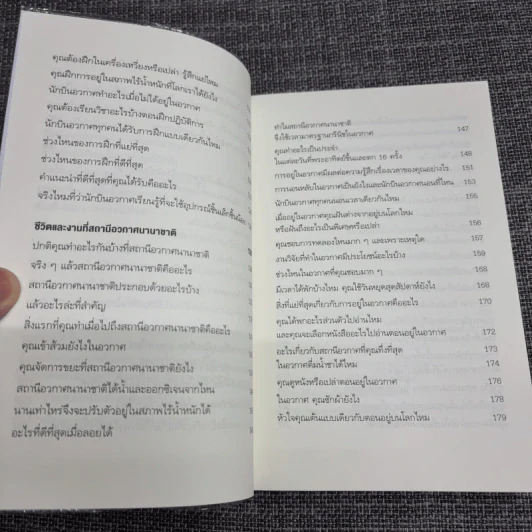 คุณต้องฝึกในเครื่องเหวี่ยงหรือเปล่า รู้สึกแย่ไหม
คุณฝึกการอยู่ในสภาพไร้น้ำหนักที่โลกเราได้ยังไง
นักบินอวกาศทำอะไรเมื่อไม่ได้อยู่ในอวกาศ
คุณต้องเรียนวิชาอะไรบ้างตอนฝึกปฏิบัติการ
นักบินอวกาศทุกคนได้รับการฝึกแบบเดียวกันไหม
ช่วงไหนของการฝึกที่แย่ที่สุด
ช่วงไหนของการฝึกที่ดีที่สุด
คำแนะนำที่ดีที่สุดที่คุณได้รับคืออะไร
จริงไหมที่ว่านักบินอวกาศเรียนรู้ที่จะใช้อุปกรณ์ชิ้นเล็กชิ้นน้อย
ชีวิตและงานที่สถานีอวกาศนานาชาติ
ปกติคุณทำอะไรกันบ้างที่สถานีอวกาศนานาชาติ
จริง ๆ แล้วสถานีอวกาศนานาชาติคืออะไร
สถานีอวกาศนานาชาติประกอบด้วยอะไรบ้าง
แล้วอะไรล่ะที่สำคัญ
สิ่งแรกที่คุณทำเมื่อไปถึงสถานีอวกาศนานาชาติคืออะไร
คุณเข้าส้วมยังไงในอวกาศ
คุณจัดการขยะที่สถานีอวกาศนานาชาติยังไง
สถานีอวกาศนานาชาติได้น้ำและออกซิเจนจากไหน
นานเท่าไหร่จึงจะปรับตัวอยู่ในสภาพไร้น้ำหนักได้
อะไรที่ดีที่สุดเมื่อลอยได้
ทำไมสถานีอวกาศนานาชาติ
จึงใช้เวลามาตรฐานกรีนิชในอวกาศ 147
คุณทำอะไรเป็นประจำ
ในแต่ละวันที่พระอาทิตย์ขึ้นและตก 16 ครั้ง 148
การอยู่ในอวกาศมีผลต่อความรู้สึกเรื่องเวลาของคุณอย่างไร 151
การนอนหลับในอวกาศเป็นยังไงและนักบินอวกาศนอนที่ไหน 153
นักบินอวกาศทุกคนนอนเวลาเดียวกันไหม 155
เมื่ออยู่ในอวกาศคุณฝันต่างจากอยู่บนโลกไหม
หรือฝันถึงอะไรเป็นพิเศษหรือเปล่า 156
คุณชอบการทดลองไหนมาก ๆ และเพราะเหตุใด 157
งานวิจัยที่ทำในอวกาศมีประโยชน์อะไรบ้าง
ช่วงไหนในอวกาศที่คุณชอบมาก ๆ
มีเวลาได้พักบ้างไหม คุณใช้วันหยุดสุดสัปดาห์ยังไง
สิ่งที่แย่ที่สุดเกี่ยวกับการอยู่ในอวกาศคืออะไร 170
คุณได้พกอะไรส่วนตัวไปอ่านไหม
และคุณจะเลือกหนังสืออะไรไปอ่านตอนอยู่ในอวกาศ 172
อะไรเกี่ยวกับสถานีอวกาศที่คุณทึ่งที่สุด 173
ในอวกาศดื่มน้ำชาได้ไหม 174
คุณดูหนังหรือเปล่าตอนอยู่ในอวกาศ 176
ในอวกาศ คุณซักผ้ายังไง 178
หัวใจคุณเต้นแบบเดียวกับตอนอยู่บนโลกไหม 179